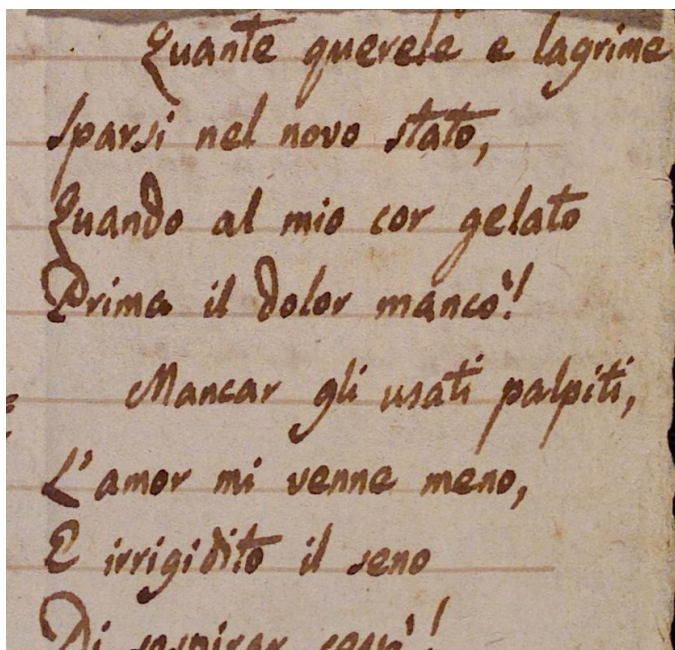 Quante querele e lagrime
Sparsi nel novo stato,
Quando al mio cor gelato
Prima il dolor mancò!
Mancar gli usati palpiti,
L'amor mi venne meno,
E irrigidito il seno
Di sospirar cessò!